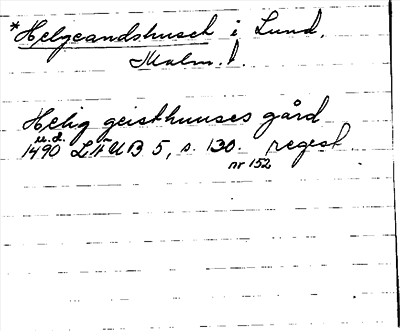 *Helgeandshuset i Lund.
Malm. l.
Helig geisthuuses gård
u.d.
1490 LÄUB 5, s. 130. regest.
nr 152